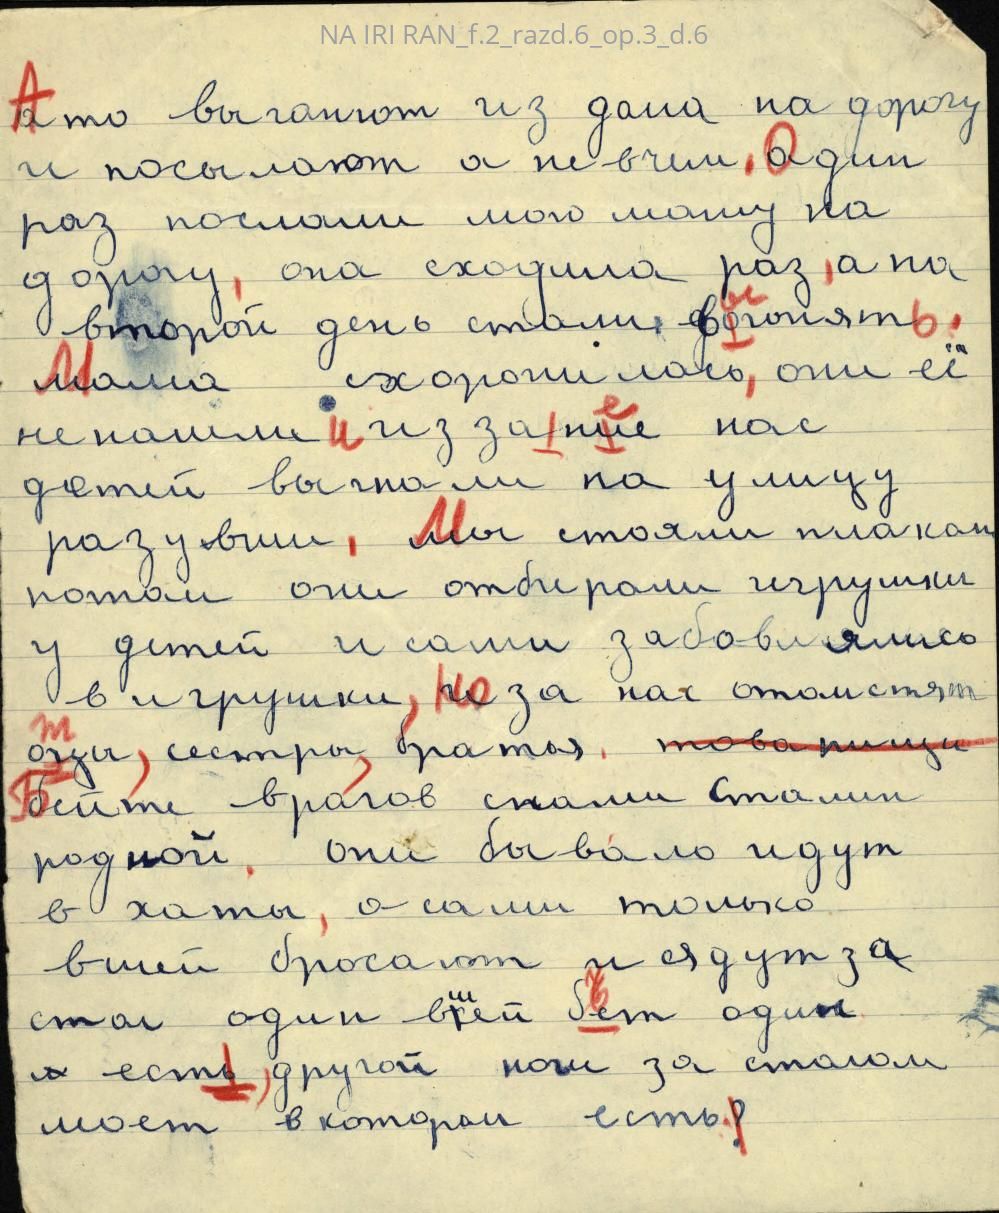 NA IRI RAN_f.2_razd.6_op.3_d.6
А то выганюют из дома на дорогу
и посылают а не вчем. Один
раз послали мою маму на
дорогу, она сходила раз, а на
второй день стали выгонять.
Мама схоронилась, они её
не нашли и из за нее нас
детей выгнали на улицу
разувши, Мы стояли плакали
потом они отбирали игрушки
у детей и сами забовлялись
в игрушки, Но за нас отомстят
отцы, сестры, братья. товарищи
Бейте врагов снами Сталин
родной. они бывало идут
в хаты, а сами только
вшей бросают и сядут за
стол один вшей бьет один
их есть, другой ноги за столом
моет в котором есть!